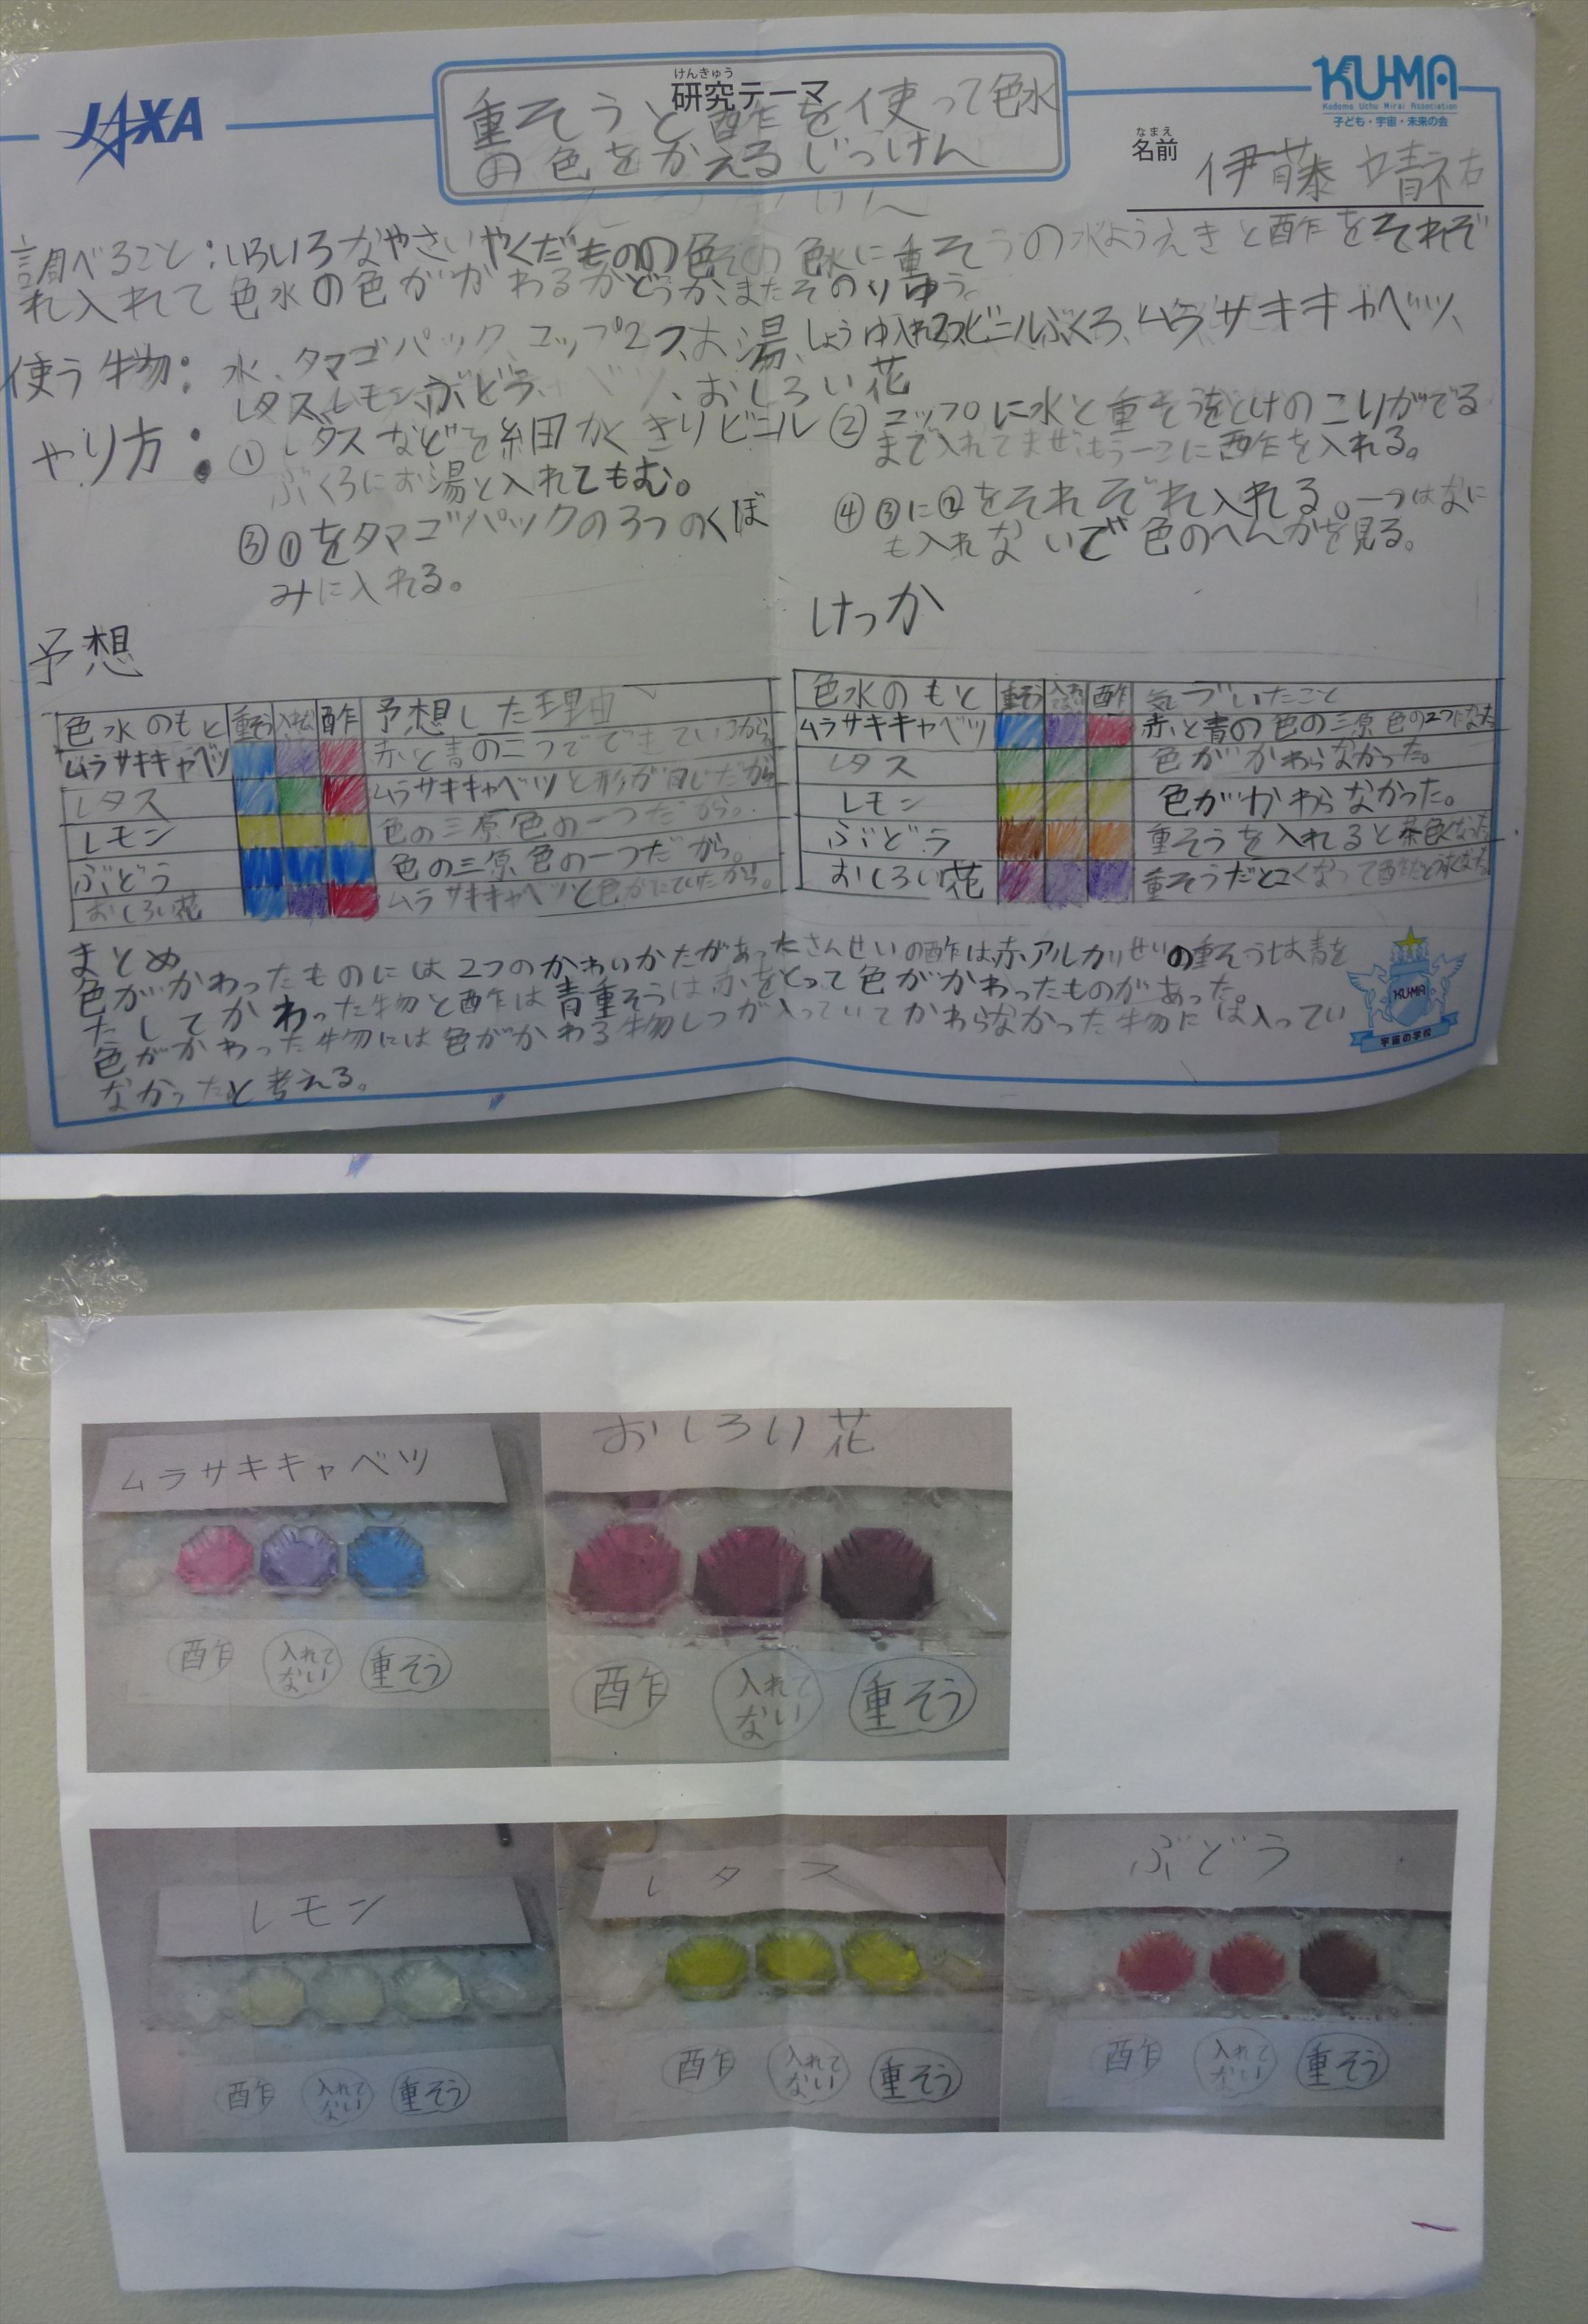 JAXA
けんきゅう
研究テーマ
重そうと酢を使って色水
の色をかえるじっけん
KU-MA
Kodomo Uchu Mirai Association
子ども・宇宙・未来の会
なまえ
名前 伊藤 靖祐
調べること:いろいろなやさいやくだものの色 色水に重そうの水ようえきと酢をそれぞ
れ入れて色水の色がかわるかどうか、またそのりゆう。
使う物: 水、タマゴパック、コップ2つ、お湯、しょうゆ入れ2つ、ビニールぶくろ、ムラサキキャベツ、
レタス、レモン、ぶどう、おしろい花
やり方:①レタスなどを細かくきりビニール
ぶくろにお湯と入れてもむ。
②コップに水と重そうをとけのこりがでる
まで入れてまぜ、もう一こに酢を入れる。
③①をタマゴパックの3つのくぼ
みに入れる。
④③に②をそれぞれ入れる。一つはなに
も入れないで色のへんかを見る。
予想
色水のもと 重そう 酢 予想した理由
ムラサキキャベツ 赤と青の二つでできているから
レタス ムラサキキャベツと形が同じだから
レモン 色の三原色の一つだから。
ぶどう 色の三原色の一つだから。
おしろい花 ムラサキキャベツと色がにていたから。
けっか
色水のもと 重そう 入れてない 酢 気づいたこと
ムラサキキャベツ 赤と青の色の三原色の2つになった
レタス 色がかわらなかった。
レモン 色がかわらなかった。
ぶどう 重そうを入れると茶色くなった
おしろい花 重そうだとこくなって酢だとうすくなった
まとめ
色がかわったものには2つのかわりかたがあったさんせいの酢は赤アルカリせいの重そうは青を
たしてかわった物と酢は青重そうは赤をとって色がかわったものがあった。
色がかわった物には色がかわる物しつが入っていてかわらなかった物には入ってい
なかったと考える。
KUMA
宇宙の学校
ムラサキキャベツ
酢 入れてない 重そう
おしろい花
酢 入れてない 重そう
レモン
酢 入れてない 重そう
レタス
酢 入れてない 重そう
ぶどう
酢 入れてない 重そう